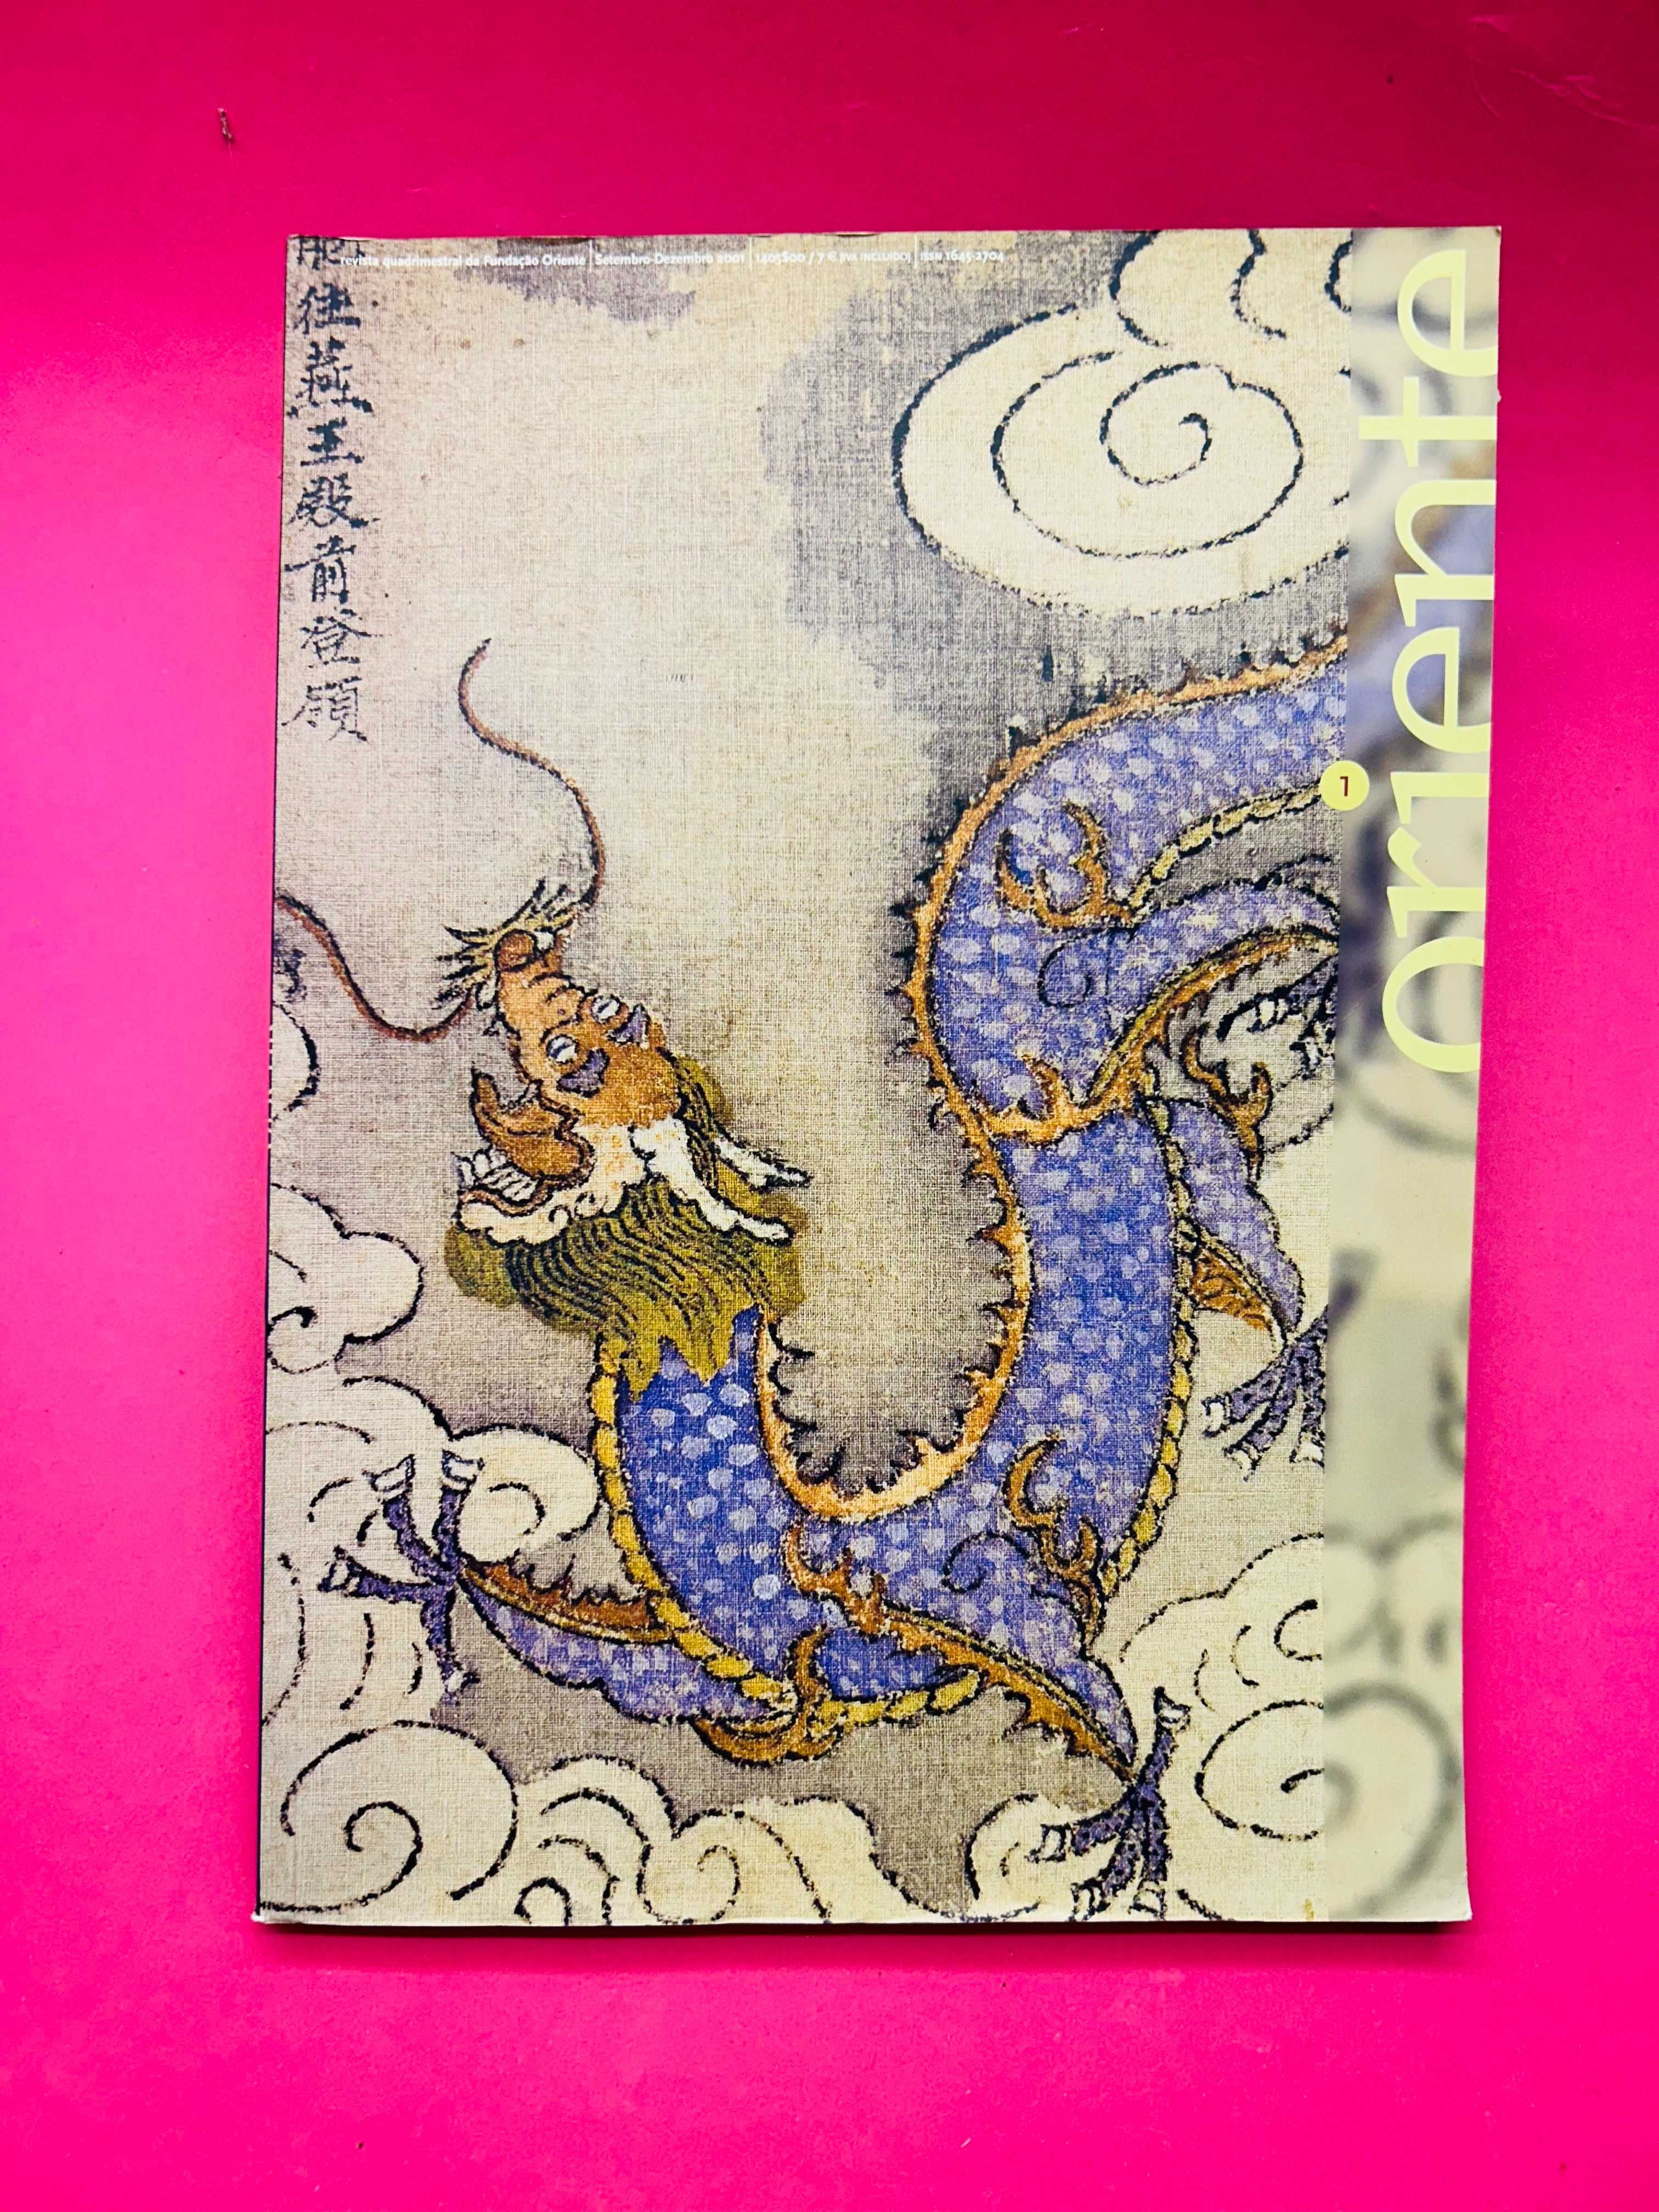 revista quadrimestral da Fundação Oriente | Setembro-Dezembro 2001 | 1403$00 / 7 € [IVA INCLUÍDO] | ISSN 1645-2704
往燕王殿前登領
oriente
1